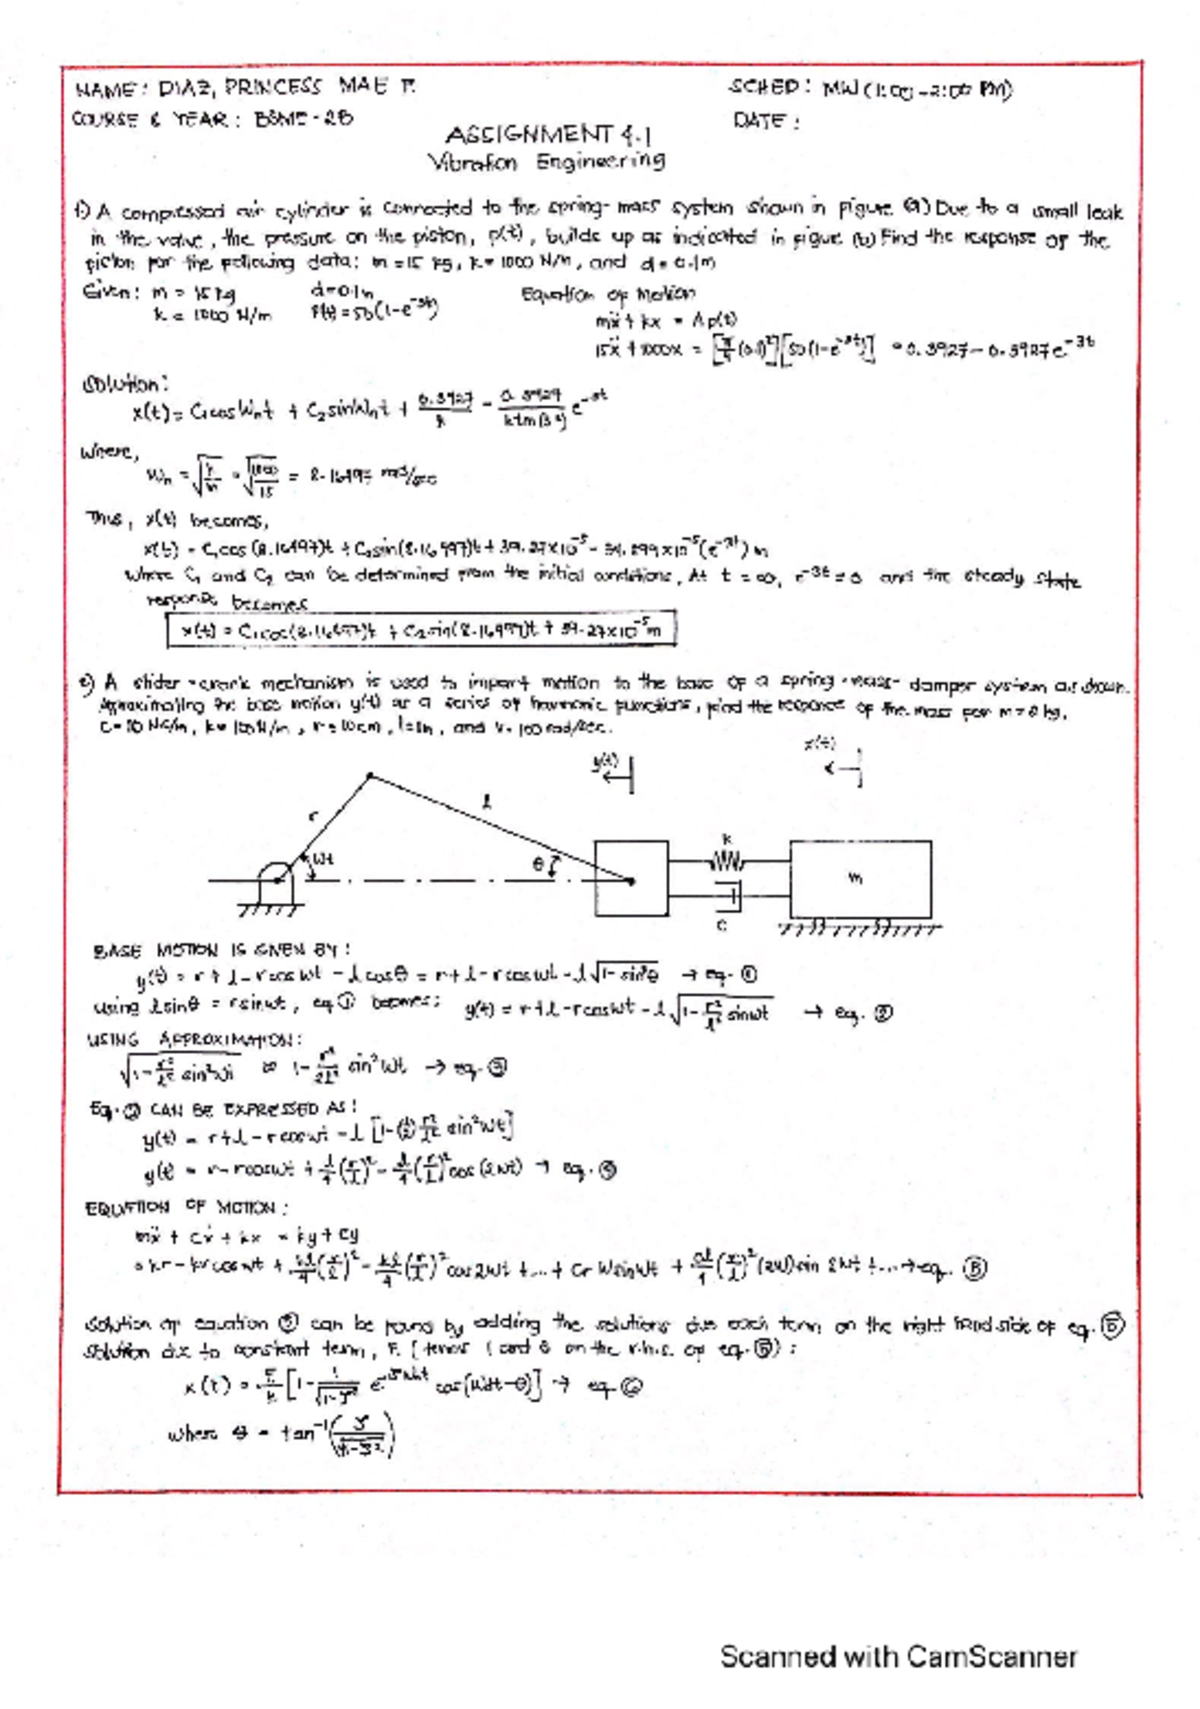 NAME: DIAZ, PRINCESS MAE P. SCHED: MW (1:00-2:00 PM)
COURSE & YEAR: BSME-2B DATE:
ASSIGNMENT 4.1
Vibration Engineering
1.) A compressed air cylinder is connected to the spring-mass system shown in figure (a) Due to a small leak
in the valve, the pressure on the piston, p(t), builds up as indicated in figure (b) Find the response of the
piston for the following data: m = 15 kg, k = 1000 N/m, and d = 0.1m
Given: m = 15 kg d = 0.1m Equation of Motion
k = 1000 N/m P(t) = 50(1-e^-3t) mẍ + kx = A p(t)
15ẍ + 1000x = [π/4 (0.1)²][50(1-e^-3t)] = 0.3927 - 0.3927e^-3t
Solution:
x(t) = C₁cosWnt + C₂sinWnt + 0.3927/k - 0.3927/k+m(3²) e^-3t
Where,
Wn = √k/m = √1000/15 = 8.16497 rad/sec
Thus, x(t) becomes,
x(t) = C₁cos(8.16497)t + C₂sin(8.16497)t + 39.27x10^-5 - 34.599x10^-5(e^-3t) m
where C₁ and C₂ can be determined from the initial conditions, At t = ∞, e^-3t = 0 and the steady state
response becomes
x(t) = C₁cos(8.16497)t + C₂sin(8.16497)t + 39.27x10^-5 m
2) A slider-crank mechanism is used to impart motion to the base of a spring-mass-damper system as shown.
Approximating the base motion y(t) as a series of harmonic functions, find the response of the mass for m =
kg,
c = 10 Ns/m, k = 100N/m, r = 10cm, l = 1m, and 100 rad/sec.
y(t) x(t)
r l
Wt θ k m
c
BASE MOTION IS GIVEN BY:
y(t) = r + l - rcosWt - lcosθ = r + l - rcosWt - l√1-sin²θ → eq. ①
Using lsinθ = rsinWt, eq ① becomes: y(t) = r + l - rcosWt - l√1-r²/l² sinWt → eq. ②
USING APPROXIMATION:
√1-r²/l² sin²Wt ≈ 1 - r²/2l² sin²Wt → eq. ③
Eq. ② CAN BE EXPRESSED AS:
y(t) = r + l - rcosWt - l [1-(1/2) r²/l² sin²Wt]
y(t) = r - rcosWt + l/4 (r/l)² - l/4 (r/l)² cos(2Wt) → eq. ④
EQUATION OF MOTION:
mẍ + cẋ + kx = ky + cy
= kr - krcosWt + kl/4 (r/l)² - kl/4 (r/l)² cos2Wt + ... + crWsinWt + cl/4 (r/l)² (2W)sin 2Wt + ... → eq. ⑤
Solution of equation ⑤ can be found by adding the solutions due each term on the right hand side of eq. ⑤
Solution due to constant term, F. [terms 1 and 3 on the r.h.s. of eq. ⑤):
x(t) = F/k [1 - 1/√1-ζ² e^-ζWnt cos(Wdt-θ)] → eq ⑥
where θ = tan^-1(ζ/√1-ζ²)
Scanned with CamScanner